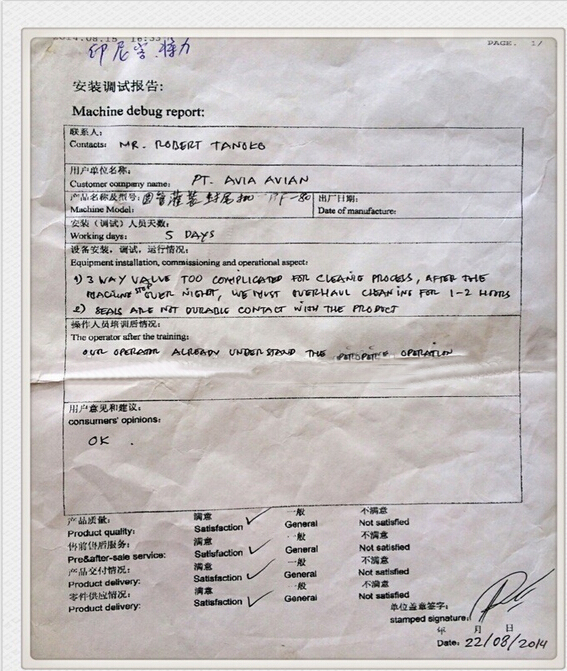 2014.08.15 16:35 PAGE. 1/
印尼
安装调试报告:
Machine debug report:
联系人:
Contacts: MR. ROBERT TANOKO
用户单位名称:
Customer company name: PT. AVIA AVIAN
产品名称及型号: 灌装封尾机 -80 出厂日期:
Machine Model: Date of manufacture:
安装(调试)人员天数:
Working days: 5 DAYS
设备安装,调试,运行情况:
Equipment installation, commissioning and operational aspect:
1) 3 WAY VALVE TOO COMPLICATED FOR CLEANING PROCESS, AFTER THE
MACHINE STOP OVER NIGHT, WE MUST OVERHAUL CLEANING FOR 1-2 HOURS
2) SEALS ARE NOT DURABLE CONTACT WITH THE PRODUCT
操作人员培训后情况:
The operator after the training:
OUR OPERATOR ALREADY UNDERSTAND THE OPERATION
用户意见和建议:
consumers' opinions:
OK .
产品质量: 满意 一般 不满意
Product quality: Satisfaction ✓ General Not satisfied
售前售后服务: 满意 一般 不满意
Pre&after-sale service: Satisfaction ✓ General Not satisfied
产品交付情况: 满意 一般 不满意
Product delivery: Satisfaction ✓ General Not satisfied
零件供应情况: 满意 一般 不满意
Product delivery: Satisfaction ✓ General Not satisfied
单位盖章签字:
stamped signature:
年 月 日
Date: 22/08/2014